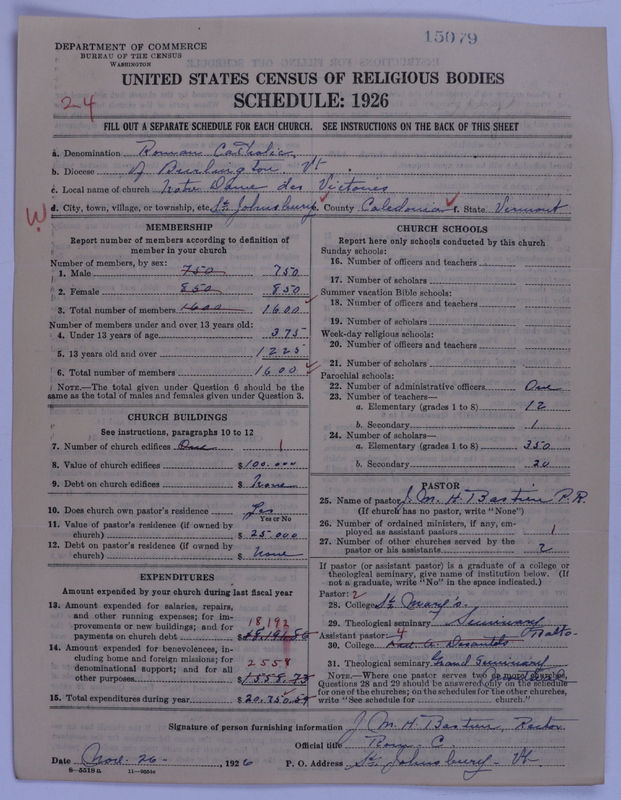 15079
DEPARTMENT OF COMMERCE
BUREAU OF THE CENSUS
WASHINGTON
UNITED STATES CENSUS OF RELIGIOUS BODIES
24
SCHEDULE: 1926
FILL OUT A SEPARATE SCHEDULE FOR EACH CHURCH. SEE INSTRUCTIONS ON THE BACK OF THIS SHEET
a. Denomination Roman Catholic
b. Diocese of Burlington Vt
c. Local name of church Notre Dame des Victoires
W
d. City, town, village, or township, etc. St. Johnsbury County Caledonia f. State Vermont
MEMBERSHIP
Report number of members according to definition of
member in your church
Number of members, by sex:
1. Male 750 750
2. Female 850 850
3. Total number of members 1600 1600
Number of members under and over 13 years old:
4. Under 13 years of age 375
5. 13 years old and over 1225
6. Total number of members 1600
NOTE.—The total given under Question 6 should be the
same as the total of males and females given under Question 3.
CHURCH BUILDINGS
See instructions, paragraphs 10 to 12
7. Number of church edifices One 1
8. Value of church edifices $100.000
9. Debt on church edifices $ None
10. Does church own pastor's residence Yes
Yes or No
11. Value of pastor's residence (if owned by
church) $ 25.000
12. Debt on pastor's residence (if owned by
church) $ None
EXPENDITURES
Amount expended by your church during last fiscal year
13. Amount expended for salaries, repairs,
and other running expenses; for im-
provements or new buildings; and for 18,192
payments on church debt $
14. Amount expended for benevolences, in-
cluding home and foreign missions; for
denominational support; and for all 2558
other purposes $1558.73
15. Total expenditures during year $20.750.59
CHURCH SCHOOLS
Report here only schools conducted by this church
Sunday schools:
16. Number of officers and teachers
17. Number of scholars
Summer vacation Bible schools:
18. Number of officers and teachers
19. Number of scholars
Week-day religious schools:
20. Number of officers and teachers
21. Number of scholars
Parochial schools:
22. Number of administrative officers One
23. Number of teachers—
a. Elementary (grades 1 to 8) 12
b. Secondary 1
24. Number of scholars—
a. Elementary (grades 1 to 8) 350
b. Secondary 20
PASTOR
25. Name of pastor J. M. H. Bastien P.R.
(If church has no pastor, write "None")
26. Number of ordained ministers, if any, em-
ployed as assistant pastors 1
27. Number of other churches served by the
pastor or his assistants 2
If pastor (or assistant pastor) is a graduate of a college or
theological seminary, give name of institution below. (If
not a graduate, write "No" in the space indicated.)
Pastor: 2
28. College St. Mary's
29. Theological seminary Seminary
Assistant pastor: 4
30. College
31. Theological seminary Grand Seminary
NOTE.—Where one pastor serves two or more churches,
Questions 28 and 29 should be answered only on the schedule
for one of the churches; on the schedules for the other churches,
write "See schedule for church."
Signature of person furnishing information J. M. H. Bastien, Rector
Official title Rom. C.
Date Nov. 26 - , 1926 P. O. Address St. Johnsbury - Vt.
8—5518a 11—9034